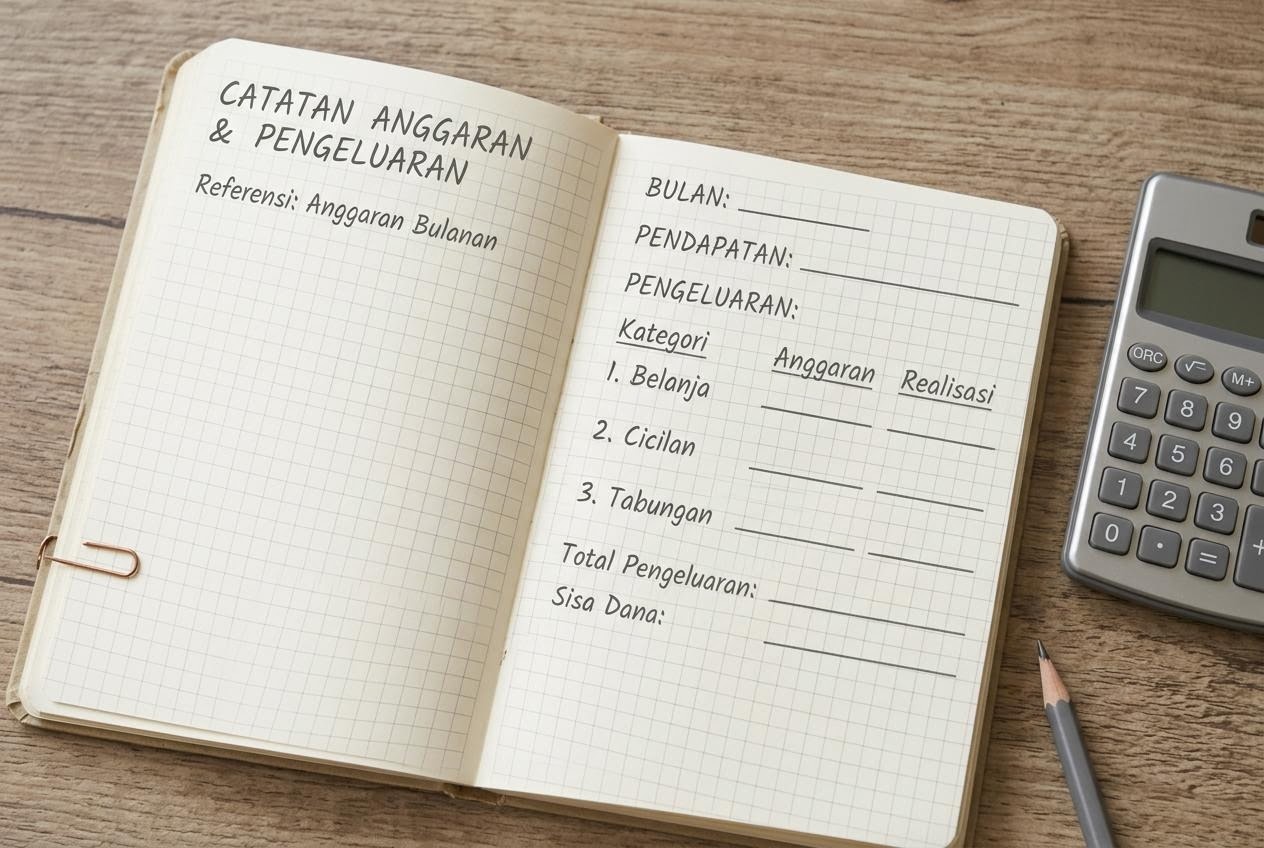 CATATAN ANGGARAN
& PENGELUARAN
Referensi: Anggaran Bulanan
BULAN:
PENDAPATAN:
PENGELUARAN:
Kategori Anggaran Realisasi
1. Belanja
2. Cicilan
3. Tabungan
Total Pengeluaran:
Sisa Dana:
ORC √= M+
7 8 9
4 5 6
1 2 3
0 . = +